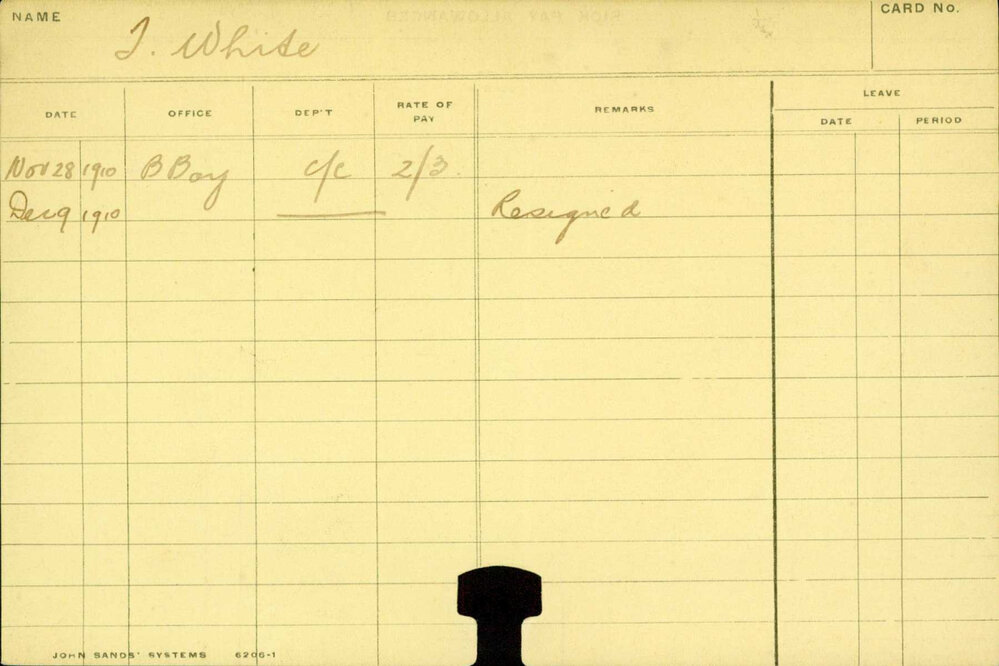 NAME
CARD No.
White
LEAVE
DATE OFFICE DEP'T RATE OF PAY REMARKS DATE PERIOD
Nov 28 1910 B Boy c/c 2/3.
Dec 9 1910 Resigned
JOHN SANDS' SYSTEMS 6206-1